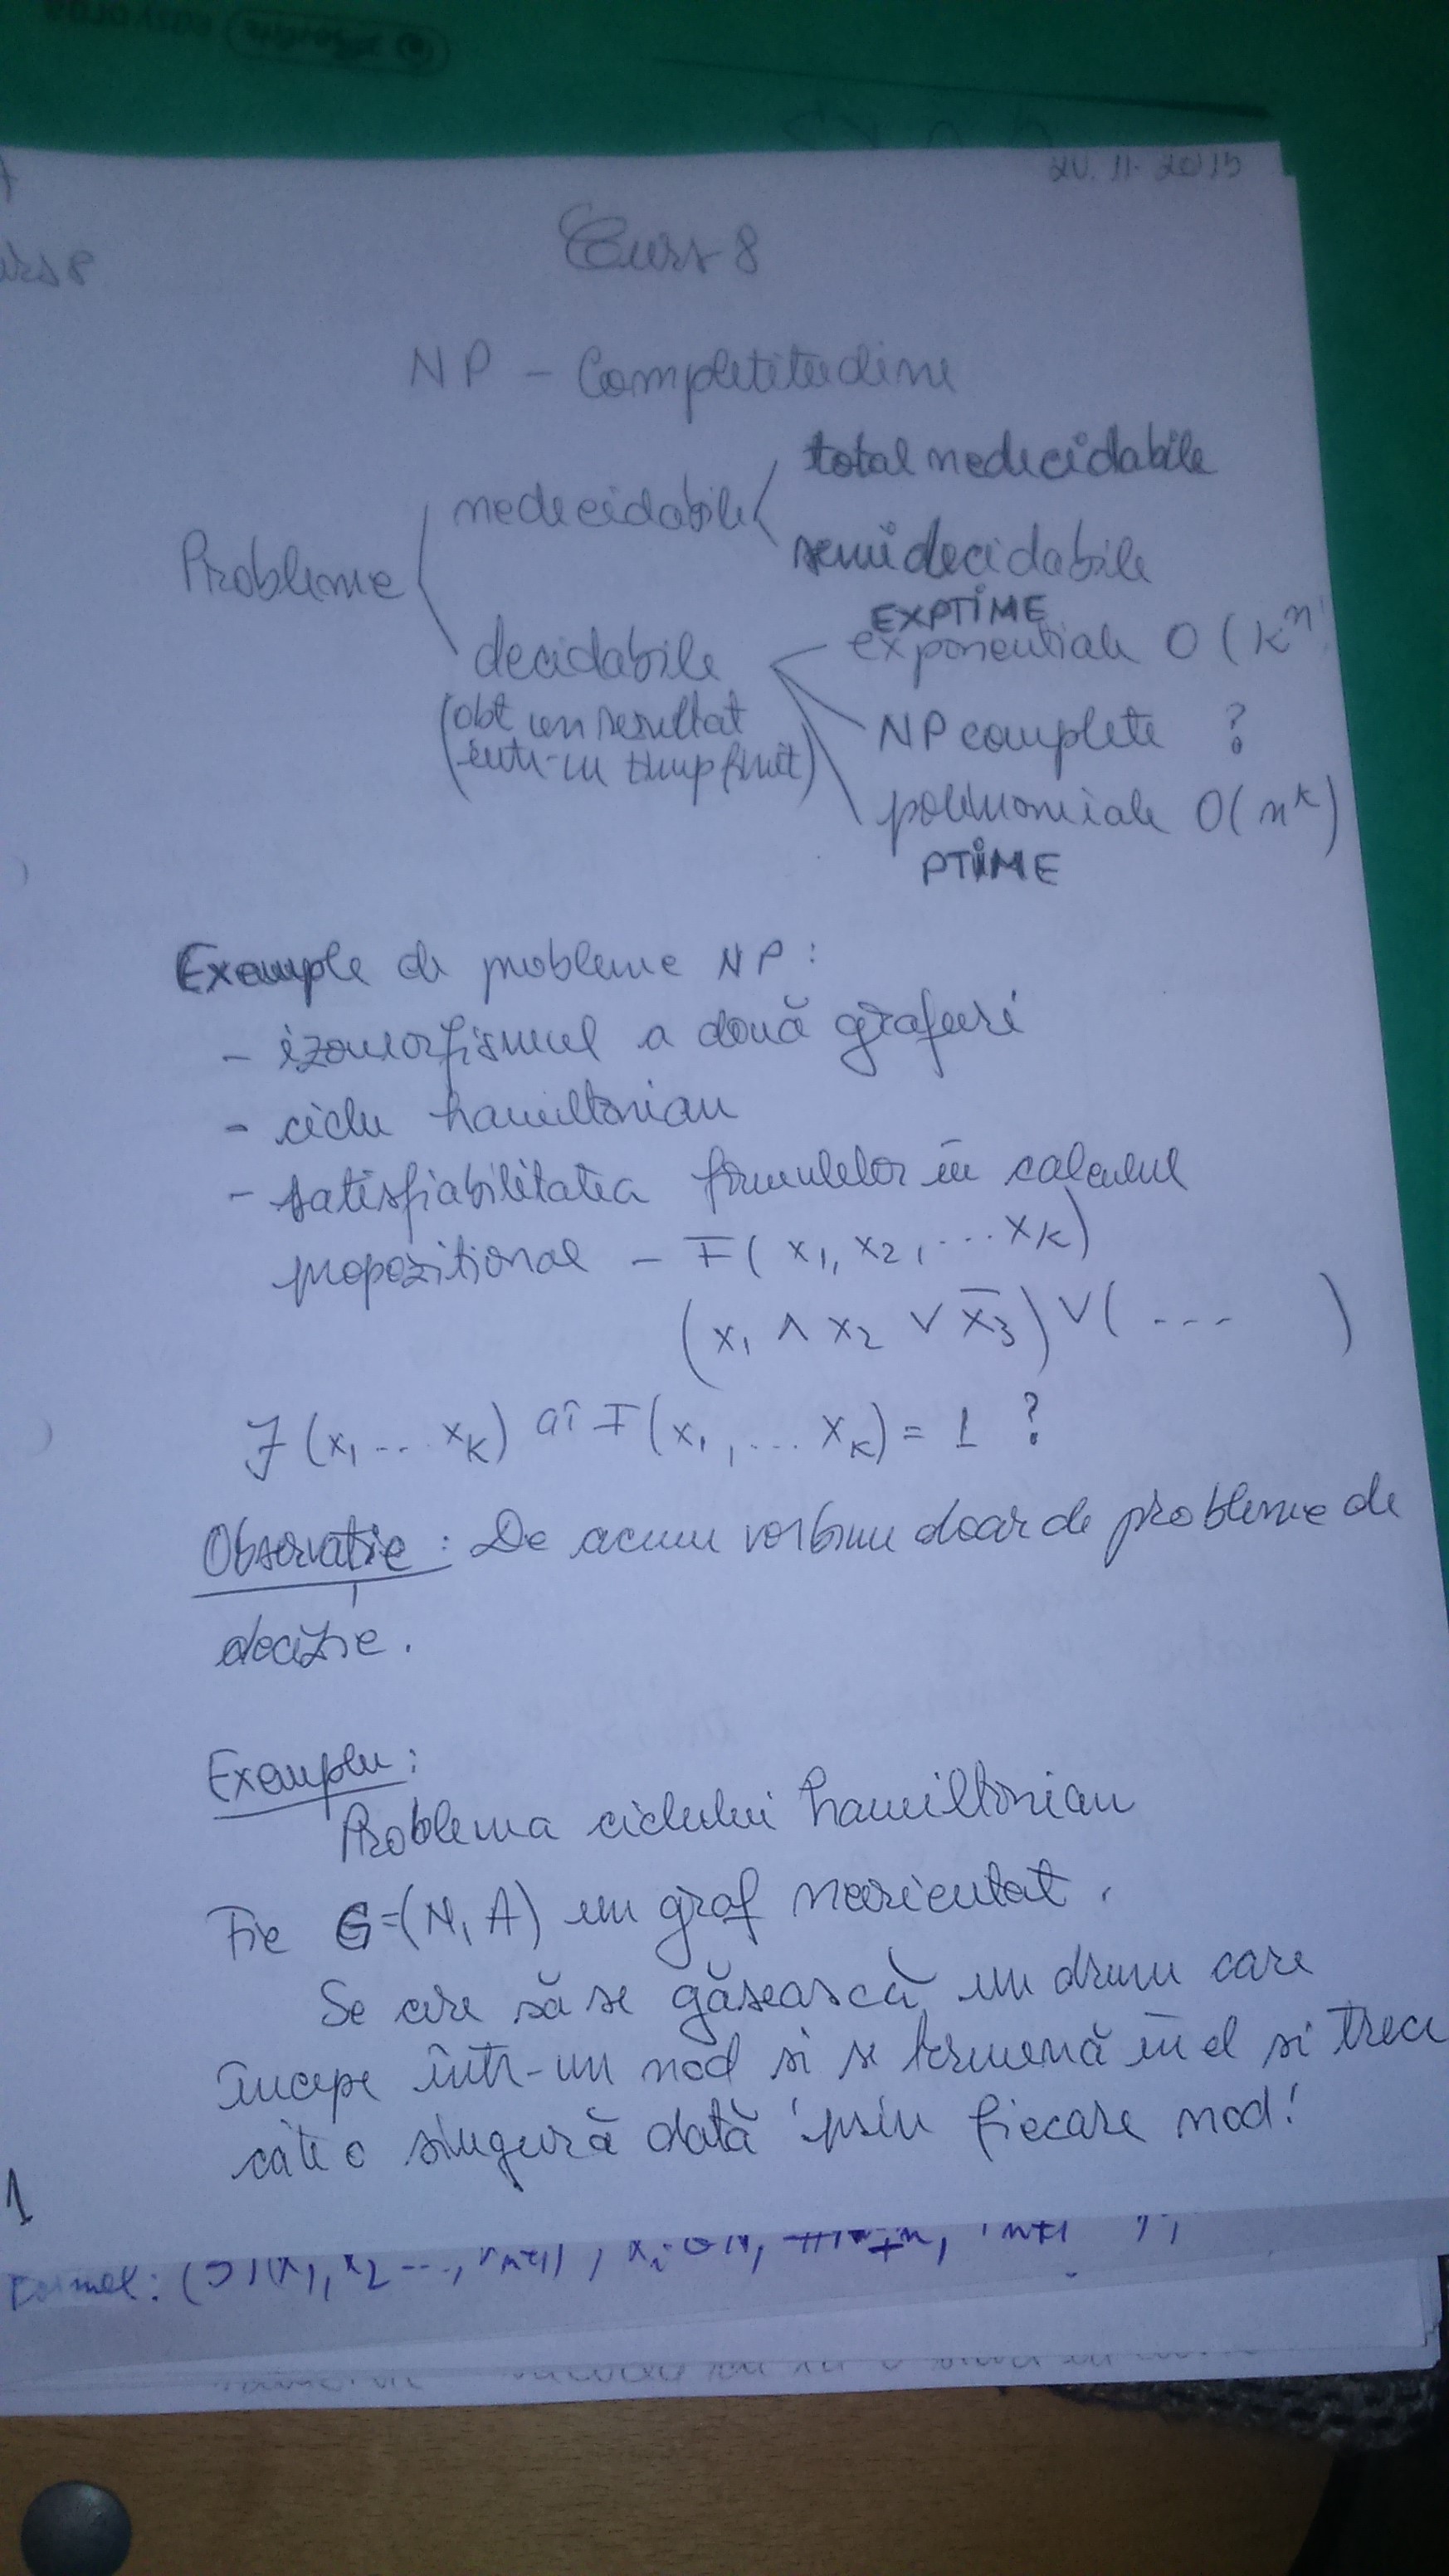 Curs 8
NP - Completitudine
Probleme
nedecidabile
total nedecidabile
semidecidabile
decidabile
(obt un rezultat
într-un timp finit)
EXPTIME
exponentiale O(k^n
NP complete ?
polinomiale O(n^k)
PTIME
Exemple de probleme NP:
- izomorfismul a două grafuri
- ciclu hamiltonian
- satisfiabilitatea formulelor în calculul
propozitional - F(x1, x2, ... xk)
(x1 ∧ x2 ∨ x̅3) ∨ ( ... )
∃ (x1 ... xk) aî F(x1, ... xk) = 1 ?
Observație: De acum vorbim doar de probleme de
decizie.
Exemplu:
Problema ciclului hamiltonian
Fie G=(N, A) un graf neorientat.
Se cere să se găsească un drum care
începe într-un nod si se termenă în el si trece
câte o singură dată prin fiecare nod!
1